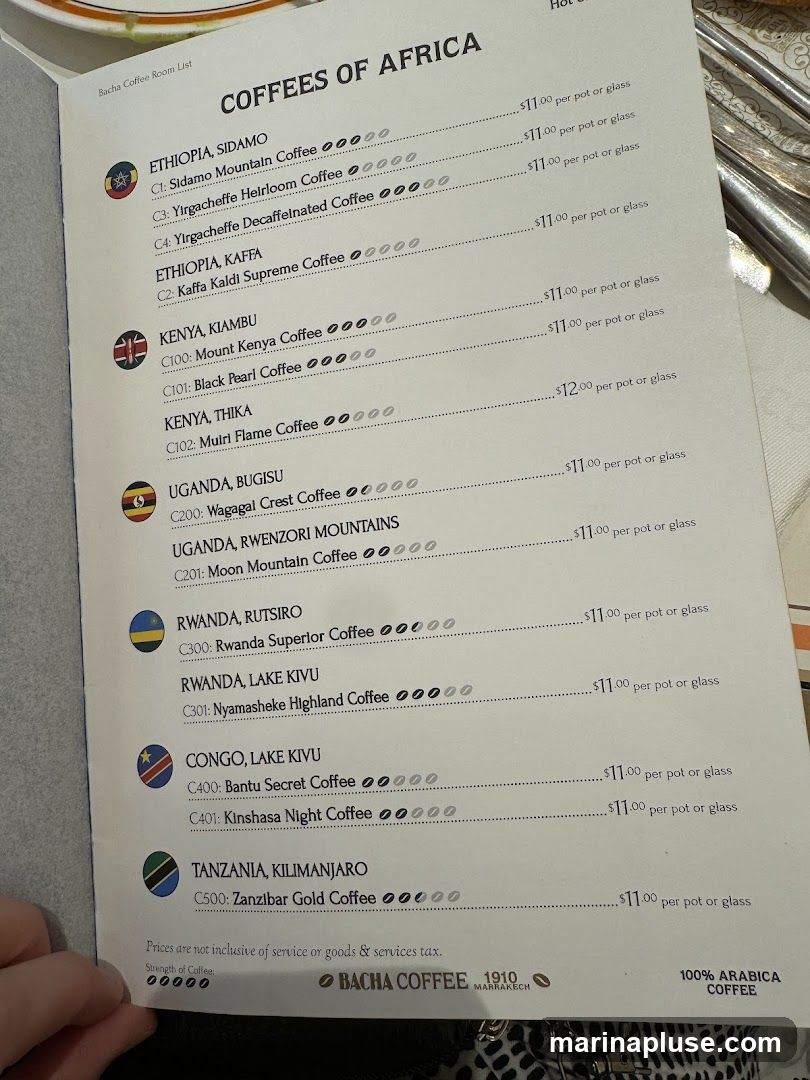 Hot
Bacha Coffee Room List
COFFEES OF AFRICA
ETHIOPIA, SIDAMO
C1: Sidamo Mountain Coffee $11.00 per pot or glass
C3: Yirgacheffe Heirloom Coffee $11.00 per pot or glass
C4: Yirgacheffe Decaffeinated Coffee $11.00 per pot or glass
ETHIOPIA, KAFFA
C2: Kaffa Kaldi Supreme Coffee $11.00 per pot or glass
KENYA, KIAMBU
C100: Mount Kenya Coffee $11.00 per pot or glass
C101: Black Pearl Coffee $11.00 per pot or glass
KENYA, THIKA
C102: Muiri Flame Coffee $12.00 per pot or glass
UGANDA, BUGISU
C200: Wagagai Crest Coffee $11.00 per pot or glass
UGANDA, RWENZORI MOUNTAINS
C201: Moon Mountain Coffee $11.00 per pot or glass
RWANDA, RUTSIRO
C300: Rwanda Superior Coffee $11.00 per pot or glass
RWANDA, LAKE KIVU
C301: Nyamasheke Highland Coffee $11.00 per pot or glass
CONGO, LAKE KIVU
C400: Bantu Secret Coffee $11.00 per pot or glass
C401: Kinshasa Night Coffee $11.00 per pot or glass
TANZANIA, KILIMANJARO
C500: Zanzibar Gold Coffee $11.00 per pot or glass
Prices are not inclusive of service or goods & services tax.
Strength of Coffee:
BACHA COFFEE 1910 MARRAKECH
100% ARABICA
COFFEE
marinapluse.com